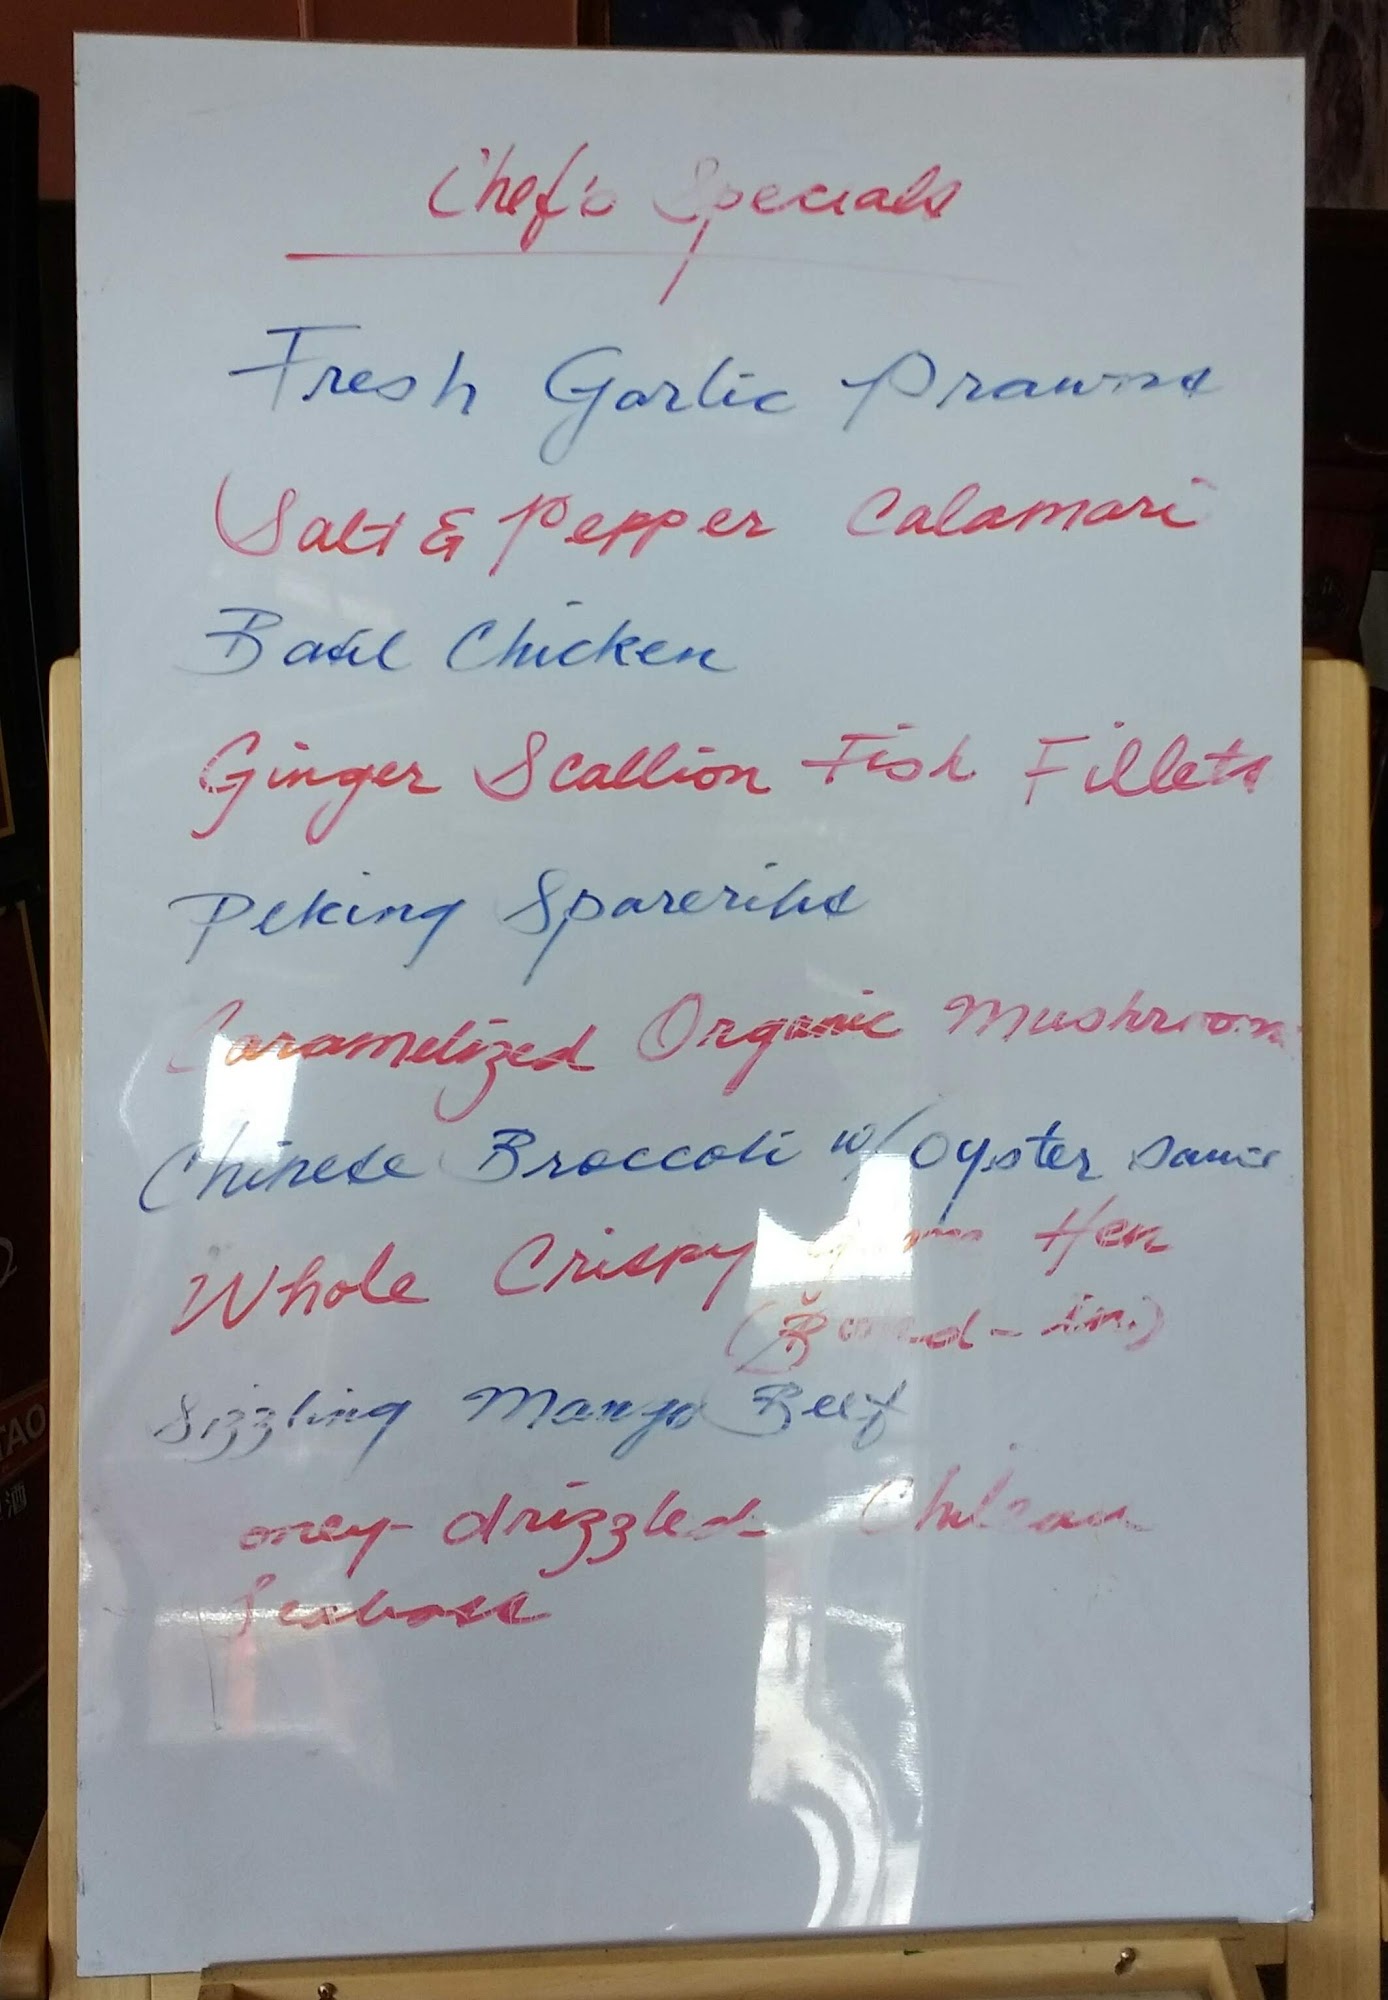 Chef's Specials
Fresh Garlic Prawns
Salt & Pepper Calamari
Basil Chicken
Ginger Scallion Fish Fillets
Peking Spareribs
Caramelized Organic Mushroom
Chinese Broccoli w/ Oyster Sauce
Whole Crispy Hen
(Boned-in)
Sizzling Mango Beef
oney-drizzled Chilean
Seabass
TAO
酒